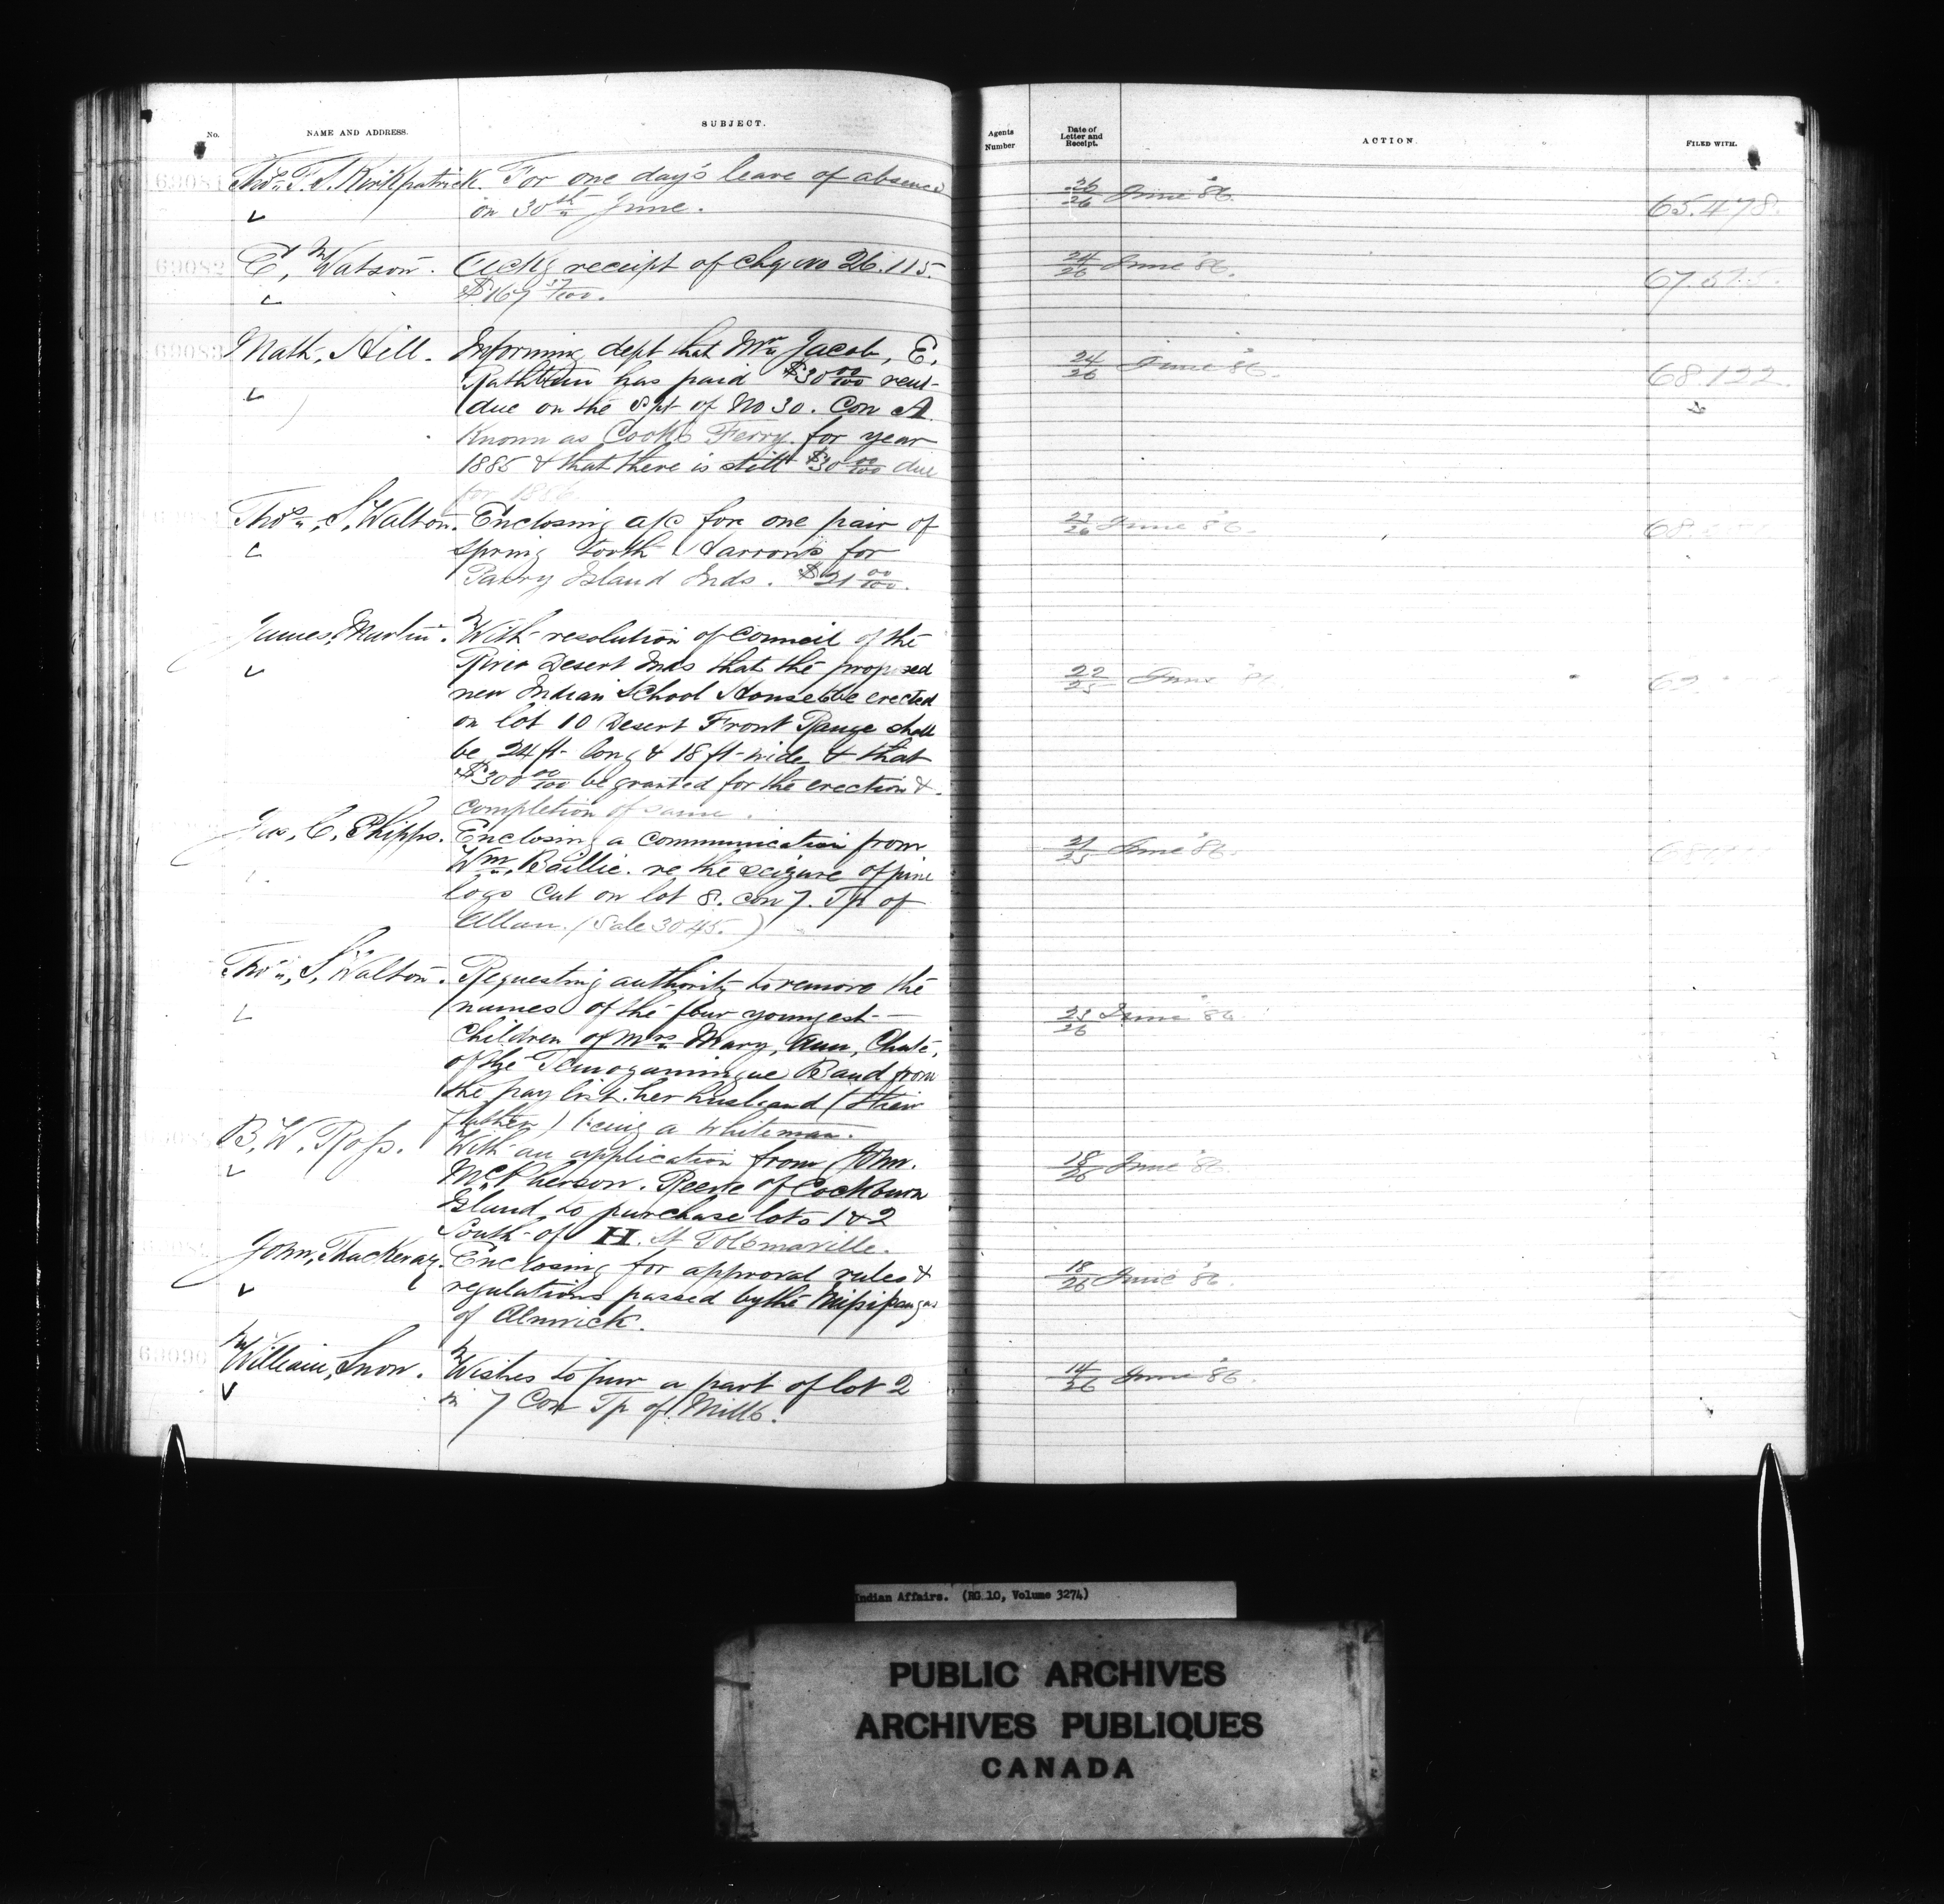 No.
NAME AND ADDRESS.
SUBJECT.
Agents Number
Date of Letter and Receipt.
ACTION.
FILED WITH.
69081
Thos. F. S. Kirkpatrick. For one day's leave of absence
on 30th June.
26/26 June '86.
65.478.
69082
E, Watson. Ackg receipt of chq no 26.115.
$167 37/100.
24/26 June '86.
69083
Nath, Hill. Informing dept that Mr Jacob, E,
Rathbun has paid $30 00/100 rent
due on the S pt of No 30. Con A
Known as Cook's Ferry. for year
1885 & that there is still $30 00/100 due
for 1886.
24/26 June '86.
68.122.
Thos, S, Walton. Enclosing a/c for one pair of
spring tooth Harrows for
Parry Island Inds. $21 00/100.
23/26 June '86.
James, Martin. With resolution of Council of the
River Desert Inds that the proposed
new Indian School House to be erected
on lot 10 Desert Front Range shall
be 24 ft long & 18 ft wide & that
$300 00/100 be granted for the erection &
completion of same.
22/25 June
Jas, C, Phipps. Enclosing a communication from
Wm, Baillie. re the seizure of pine
logs cut on lot 8. con 7. Tp of
Allan. (Sale 3045.)
21/25 June '86.
Thos, S, Walton. Requesting authority to remove the
names of the four youngest
Children of Mrs Mary, Ann, Chaté,
of the Temogamingue Band from
the pay list. her husband (their
father) being a whiteman.
23/26 June '86
B, W, Ross. With an application from John.
McPherson. Reeve of Cockburn
Island, to purchase lots 1 & 2
South of H. St Tolsmaville.
18/26 June '86.
John, Thackeray. Enclosing for approval rules &
regulations passed by the Missisaugas
of Alnwick.
18/26 June '86.
69090
William, Snow. Wishes to pur a part of lot 2
in 7 Con Tp of Mills.
14/26 June '86.
Indian Affairs. (RG 10, Volume 3274)
PUBLIC ARCHIVES
ARCHIVES PUBLIQUES
CANADA